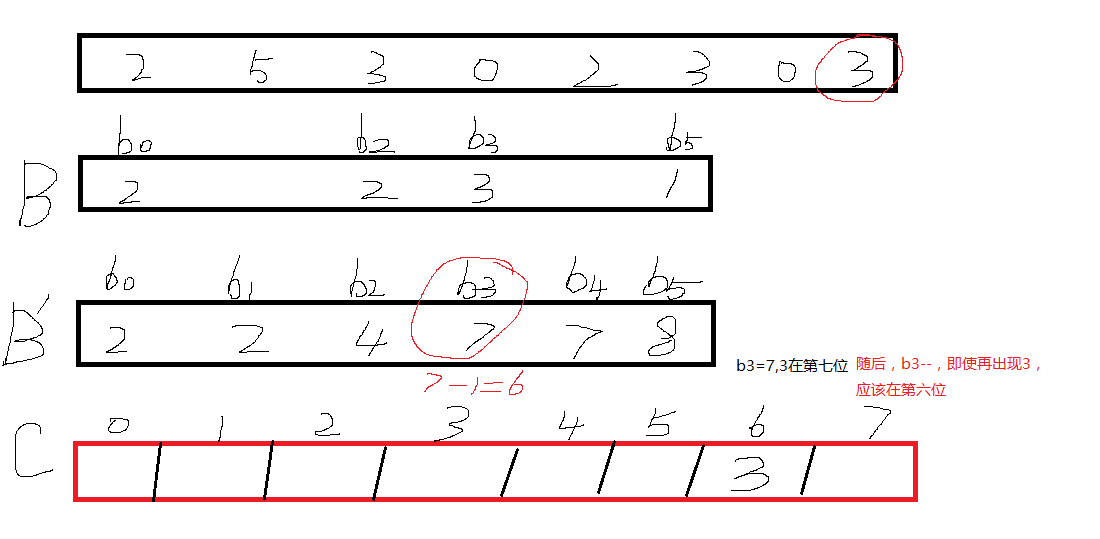 2 5 3 0 2 3 0 3
b0 b2 b3 b5
B 2 2 3 1
b0 b1 b2 b3 b4 b5
B' 2 2 4 7 7 8
b3=7,3在第七位 随后，b3--，即使再出现3，
应该在第六位
7-1=6
0 1 2 3 4 5 6 7
C 3